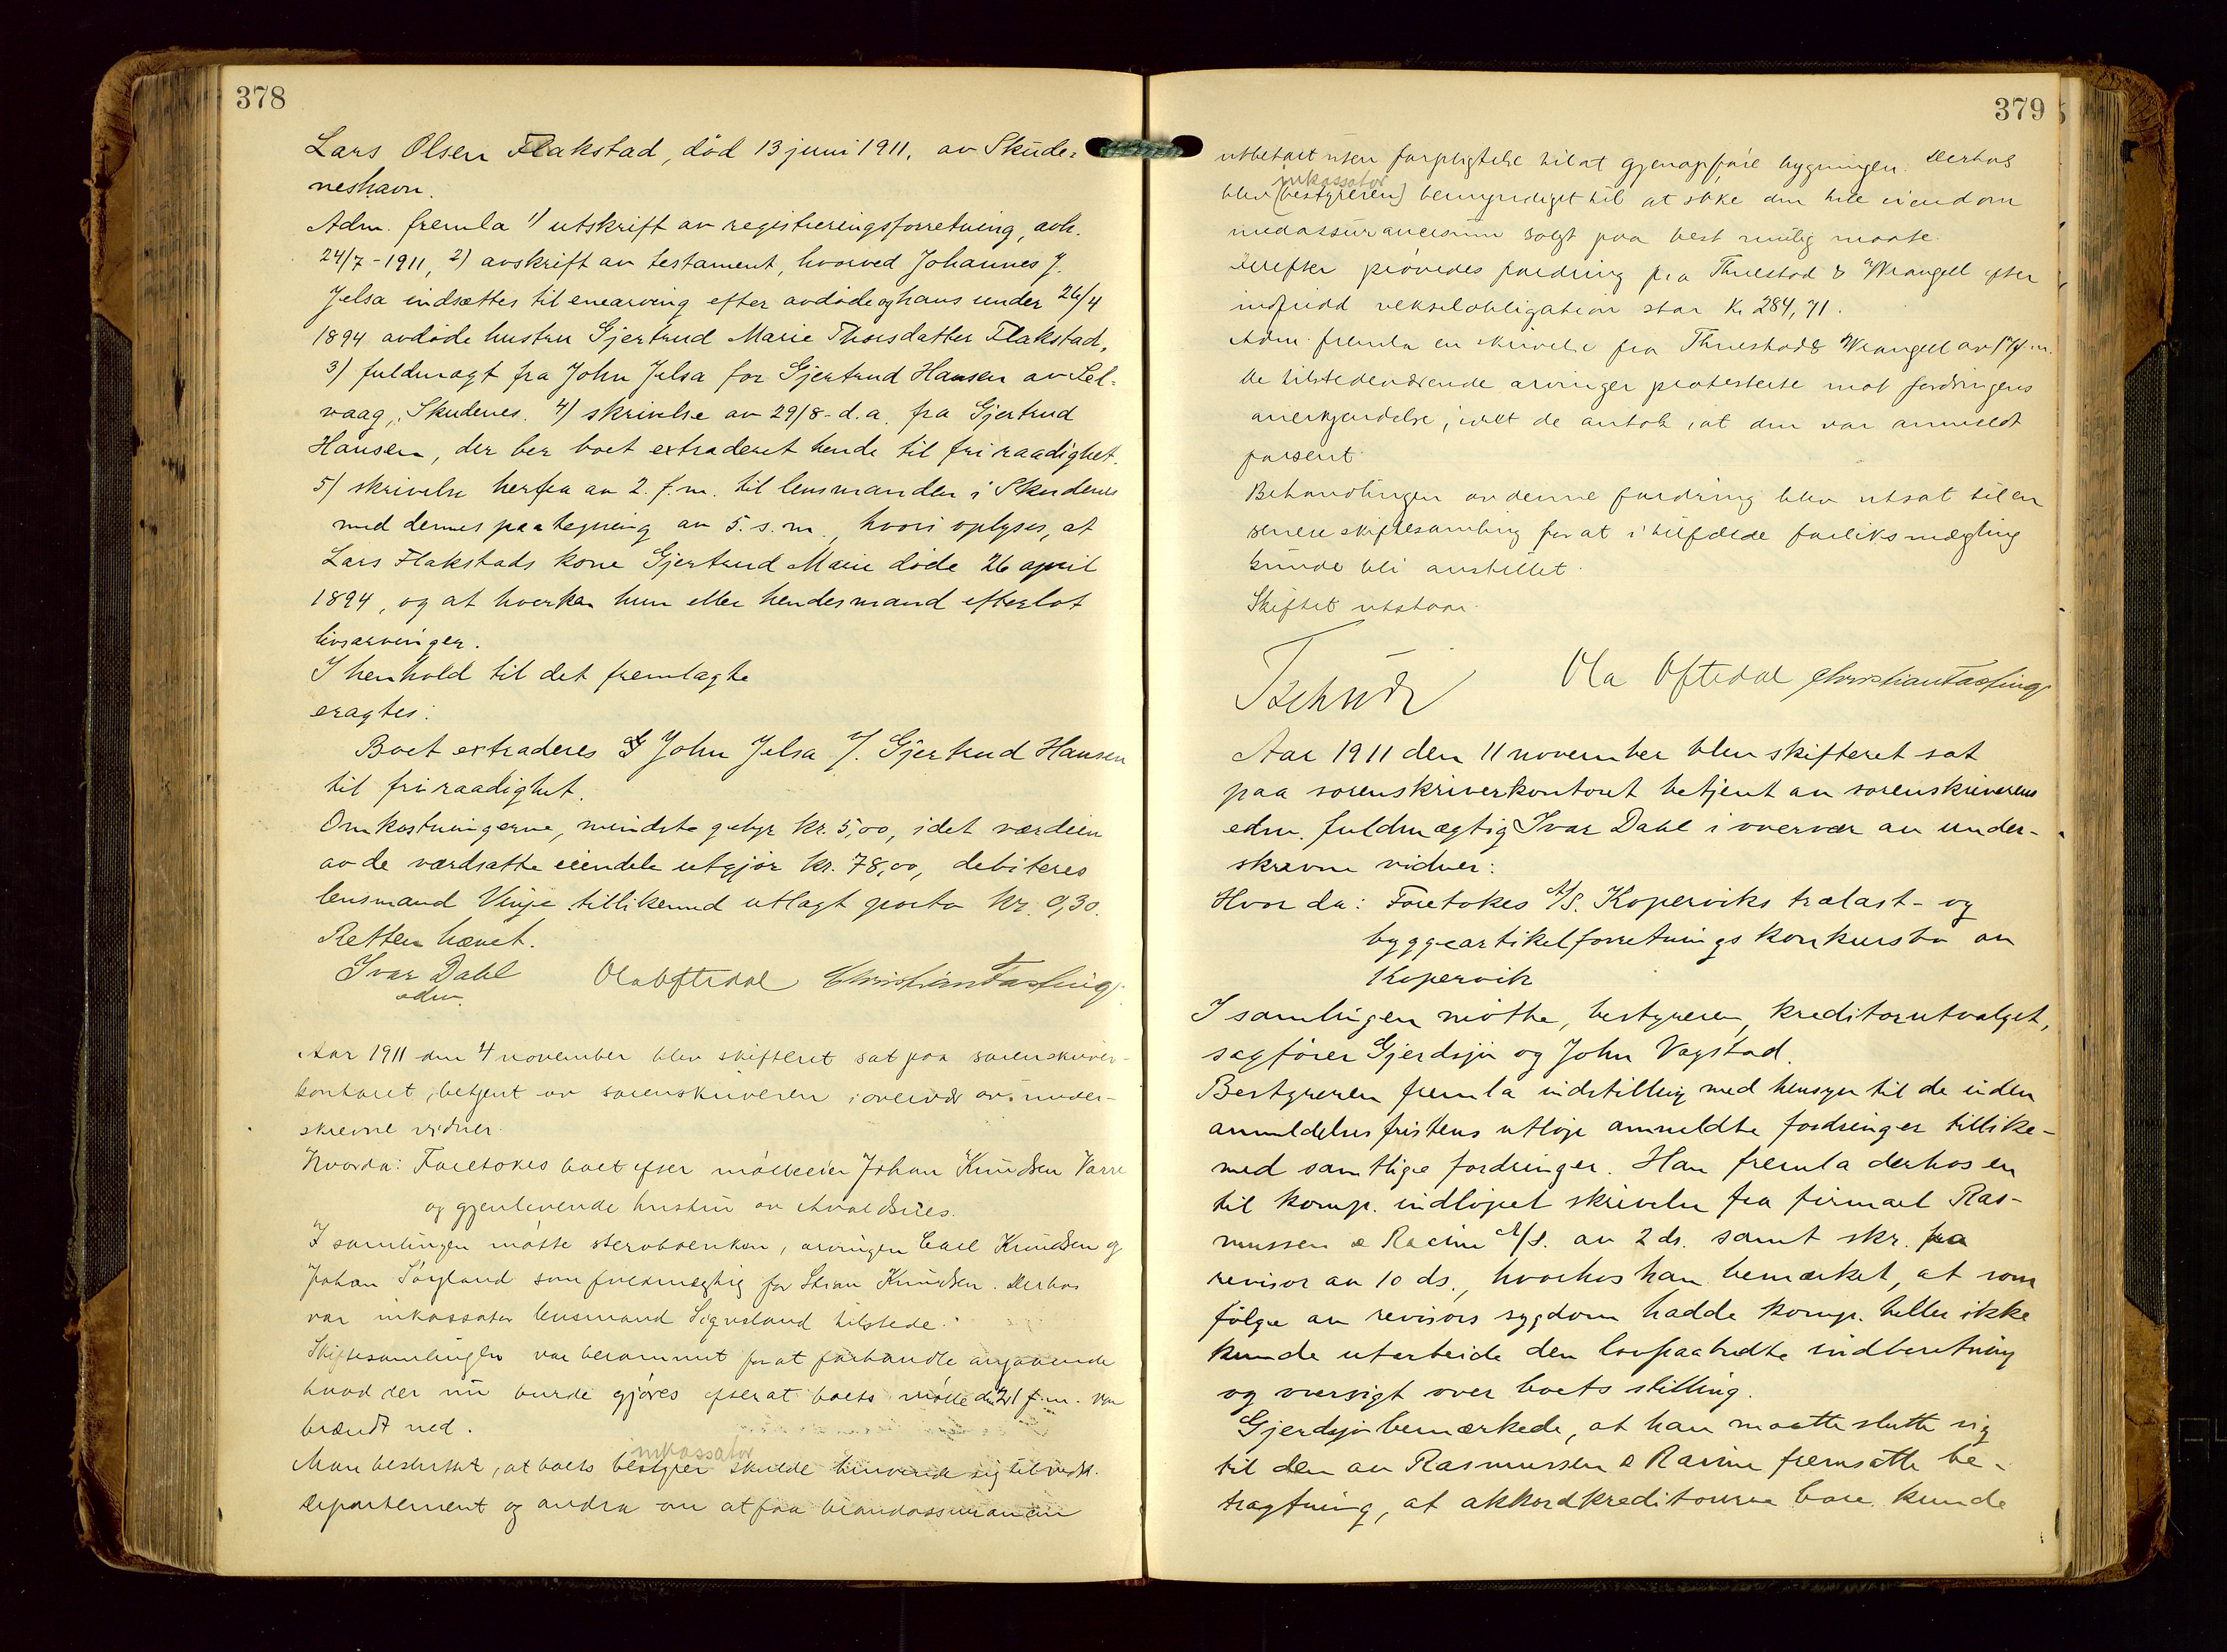 378
Lars Olsen Flakstad, död 13 juni 1911, av Skude=
neshavn.
Adm. fremla 1) utskrift av registreringsforretning, avh.
24/7 - 1911, 2) avskrift av testament, hvorved Johannes J.
Jelsa indsættes til enearving efter avdöde og hans under 26/4
1894 avdöde hustru Gjertrud Marie Thorsdatter Flakstad,
3) fuldmagt fra John Jelsa for Gjertrud Hansen av Sel-
vaag, Skudenes. 4) skrivelse av 29/8 - d.a. fra Gjertrud
Hansen, der ber boet extraderet hende til fri raadighet.
5) skrivelse herfra av 2. f.m. til lensmanden i Skudenes
med dennes paategning av 5. s.m., hvori oplyses, at
Lars Flakstads kone Gjertrud Marie döde 26 april
1894, og at hverken hun eller hendes mand efterlot
livsarvinger.
I henhold til det fremlagte
eragtes:
Boet extraderes John Jelsa f. Gjertrud Hansen
til fri raadighet.
Omkostningerne, mindste gebyr kr. 5,00, idet værdien
av de værdsatte eiendele utgjör kr. 78,00, debiteres
lensmand Vinje tillikemed utlagt porto kr. 0,30.
Retten hævet.
Ivar Dahl Ola Oftedal Christian Fasting
edm.
Aar 1911 den 4 november blev skifteret sat paa sorenskriver-
kontoret, betjent av sorenskriveren i overvær av under-
skrevne vidner.
Hvorda: Foretokes boet efter mölleeier Johan Knudsen Varre
og gjenlevende hustru av Avaldsnes.
I samlingen mötte sterboenken, arvingen Carl Knudsen og
Johan Sörgland som fuldmægtig for Knudsen. Derhos
var inkassator lensmand tilstede.
Skiftesamlingen var berammet for at forhandle angaaende
hvad der nu burde gjöres efterat boets mölle den 21 f.m. var
brændt ned.
inkassator
Man besluttet, at boets bestyrer skulde henvende sig til vedk.
Departement og andra om at faa brandassurancen
379
utbetalt uten forpligtelse til at gjenopföre bygningen. Derhos
inkassator
blev (bestyreren) bemyndiget til at söke den hele eiendom
med assurancesum solgt paa best mulig maate.
Derefter prövedes fordring fra Thuestad & Wrangell efter
indfridd vekselobligation stor Kr. 284,71.
Adm. fremla en skrivelse fra Thuestad & Wrangell av
De tilstedeværende arvinger protesterte mot fordringens
anerkjendelse, idet de antok, at den var anmeldt
forsent.
Behandlingen av denne fordring blev utsat til en
senere skiftesamling for at i tilfælde forliksmægling
kunde bli anstillet.
Skiftet utstaar.
Tschudi Ola Oftedal Christian Fasting
Aar 1911 den 11 november blev skifteret sat
paa sorenskriverkontoret betjent av sorenskriverens
edsv. fuldmægtig Ivar Dahl i overvær av under-
skrevne vidner:
Hvor da: Foretokes A/S. Koperviks trælast- og
byggeartikelforretnings konkursbo av
Kopervik
I samlingen mötte, bestyreren, kreditorutvalget,
sagförer Gjerdsjö og John Vagstad.
Bestyreren fremla indstilling med hensyn til de inden
anmeldelsesfristens utlöp anmeldte fordringer tillike-
med samtlige fordringer. Han fremla derhos en
til komp. indlöpet skrivelse fra firmaet Ras-
mussen & Racine A/S. av 2 ds. samt skr. fra
revisor av 10 ds., hvorhos han bemærket, at som
fölge av revisors sygdom hadde komp. heller ikke
kunde utarbeide den lovpaabudte indberetning
og oversigt over boets stilling.
Gjerdsjö bemærkede, at han maatte slutte sig
til den av Rasmussen & Racine fremsatte be-
tragtning, at akkordkreditorerne bare kunde